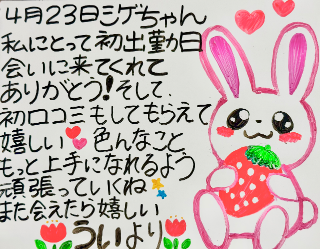 4月23日シゲちゃん
私にとって初出勤日
会いに来てくれて
ありがとう!そして、
初口コミもしてもらえて
嬉しい 色んなこと
もっと上手になれるよう
頑張っていくね
また会えたら嬉しい
ういより